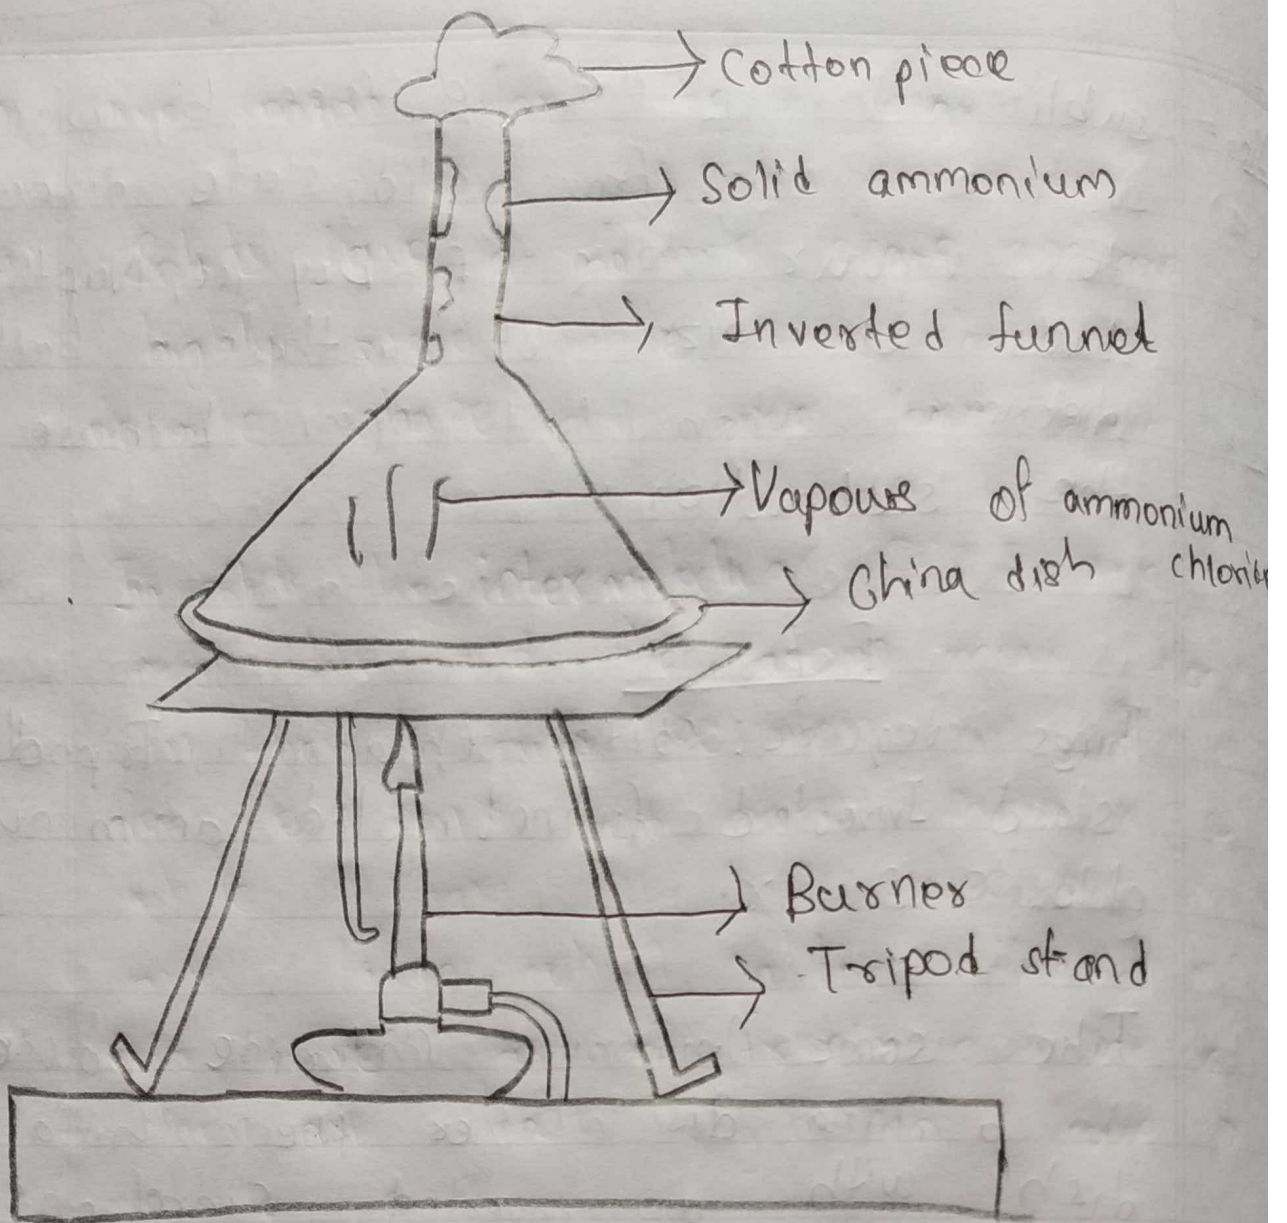 Cotton piece
Solid ammonium
Inverted funnel
Vapours of ammonium
China dish
Burner
Tripod stand